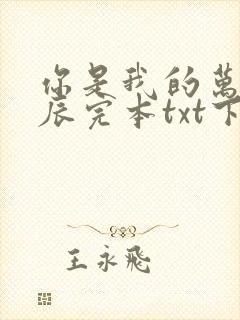 你是我的萬
辰完本txt下
王永飛